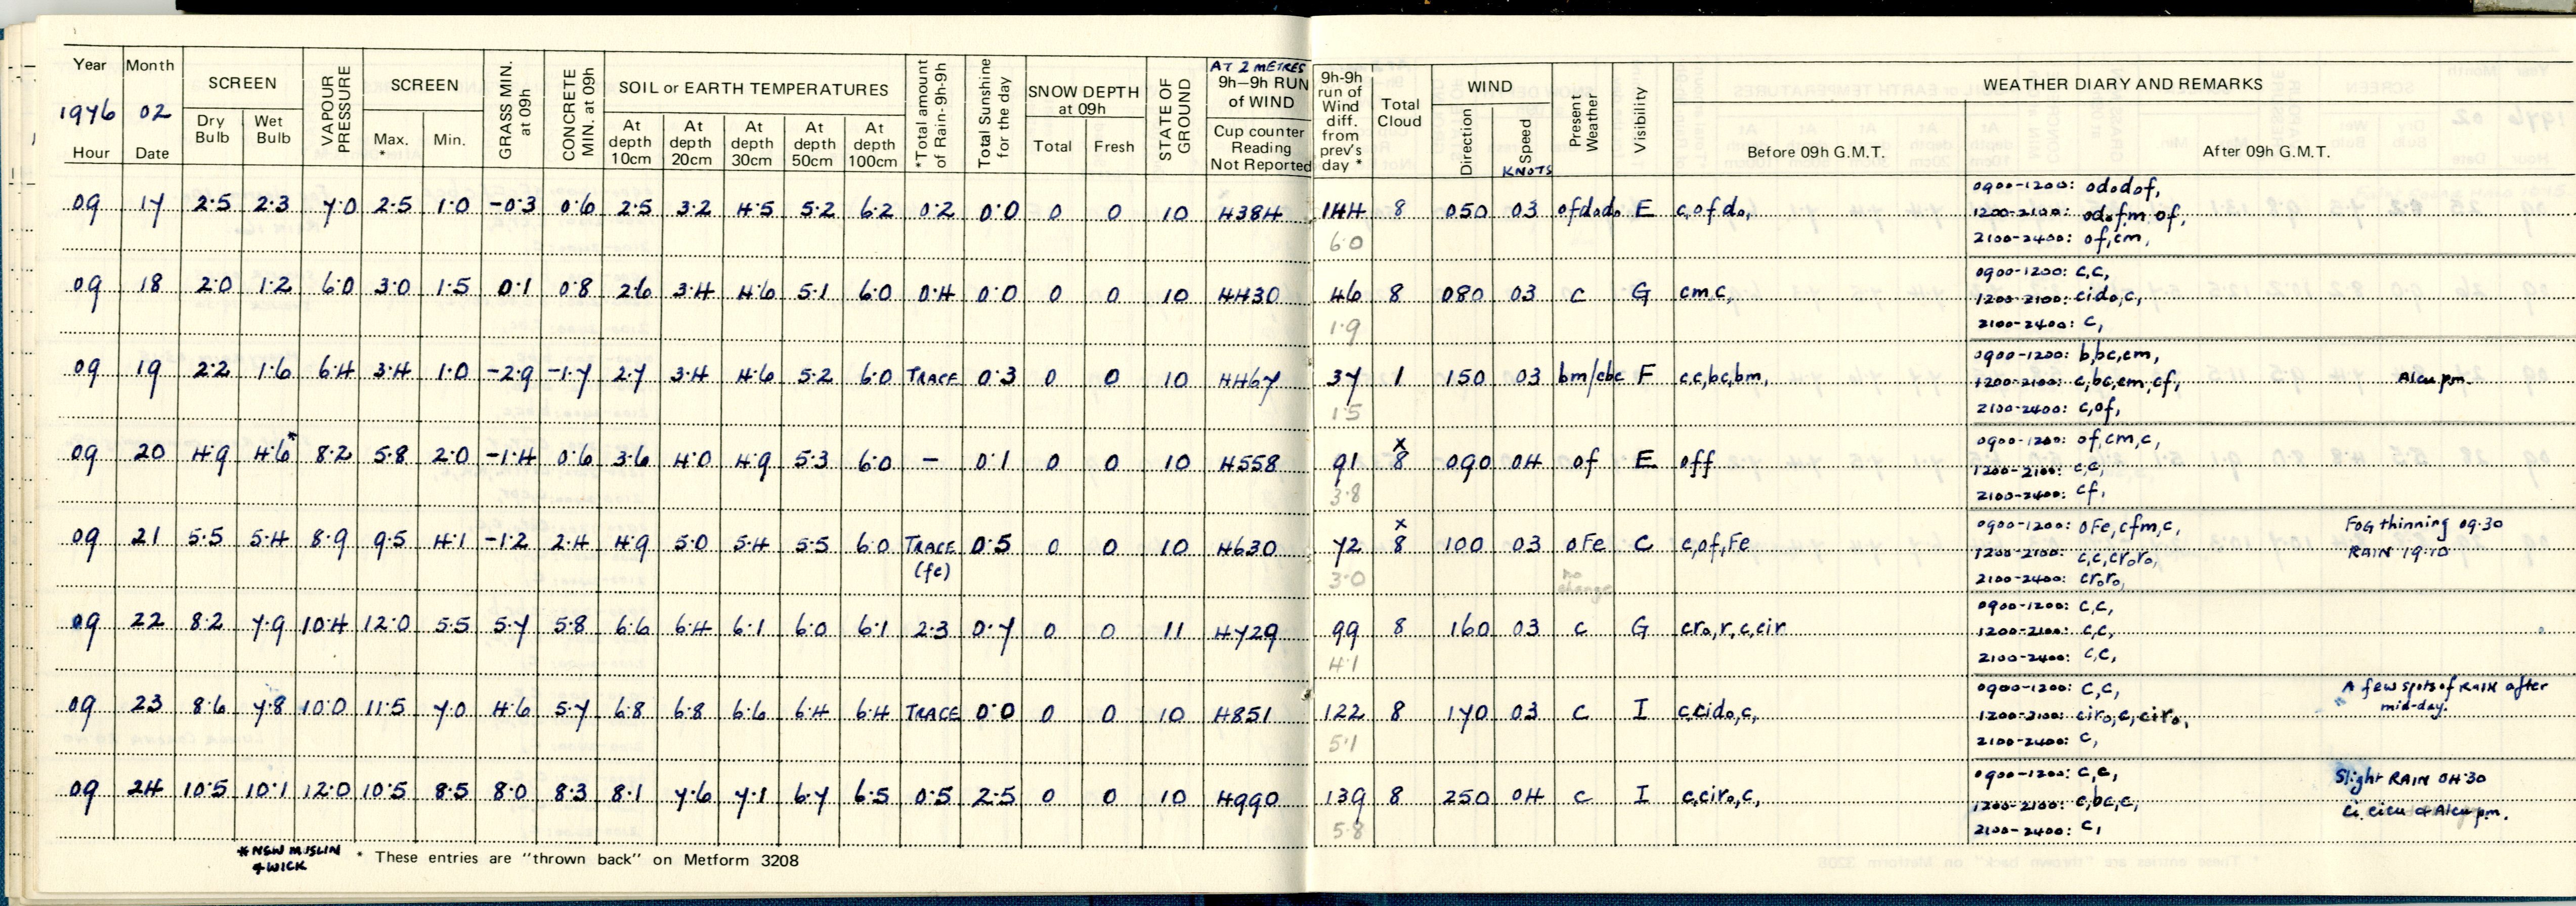 Year Month SCREEN VAPOUR PRESSURE SCREEN GRASS MIN. at 09h CONCRETE MIN. at 09h SOIL or EARTH TEMPERATURES *Total amount of Rain-9h-9h Total Sunshine for the day SNOW DEPTH at 09h STATE OF GROUND AT 2 METRES 9h–9h RUN of WIND 9h-9h run of Wind diff. from prev's day * Total Cloud WIND Present Weather Visibility WEATHER DIARY AND REMARKS
1976 02 Dry Bulb Wet Bulb Max. * Min. At depth 10cm At depth 20cm At depth 30cm At depth 50cm At depth 100cm Total Fresh Cup counter Reading Not Reported Direction Speed KNOTS Before 09h G.M.T. After 09h G.M.T.
Hour Date
09 17 2.5 2.3 7.0 2.5 1.0 -0.3 0.6 2.5 3.2 4.5 5.2 6.2 0.2 0.0 0 0 10 4384 144 8 050 03 ofdodo E c,ofdo, 0900-1200: ododof,
1200-2100: odofm,of,
6.0 2100-2400: of,cm,
09 18 2.0 1.2 6.0 3.0 1.5 0.1 0.8 2.6 3.4 4.6 5.1 6.0 0.4 0.0 0 0 10 4430 46 8 080 03 c G cm,c, 0900-1200: c,c,
1200-2100: cido,c,
1.9 2100-2400: c,
09 19 2.2 1.6 6.4 3.4 1.0 -2.9 -1.7 2.7 3.4 4.6 5.2 6.0 TRACE 0.3 0 0 10 4467 37 1 150 03 bm/cbc F c,c,bc,bm, 0900-1200: b,bc,cm,
1200-2100: c,bc,cm,cf, Alcu pm.
1.5 2100-2400: c,of,
09 20 4.9 4.6* 8.2 5.8 2.0 -1.4 0.6 3.6 4.0 4.9 5.3 6.0 – 0.1 0 0 10 4558 91 x 8 090 04 of E off 0900-1200: of,cm,c,
1200-2100: c,c,
3.8 2100-2400: cf,
09 21 5.5 5.4 8.9 9.5 4.1 -1.2 2.4 4.9 5.0 5.4 5.5 6.0 TRACE (fe) 0.5 0 0 10 4630 72 x 8 100 03 oFe C c,of,Fe 0900-1200: oFe,cfm,c, FOG thinning 09.30
1200-2100: c,c,croro, RAIN 19.10
3.0 no change 2100-2400: croro,
09 22 8.2 7.9 10.4 12.0 5.5 5.7 5.8 6.6 6.4 6.1 6.0 6.1 2.3 0.7 0 0 11 4729 99 8 160 03 c G cro,r,c,cir 0900-1200: c,c,
1200-2100: c,c,
4.1 2100-2400: c,c,
09 23 8.6 7.8 10.0 11.5 7.0 4.6 5.7 6.8 6.8 6.6 6.4 6.4 TRACE 0.0 0 0 10 4851 122 8 170 03 c I c,cido,c, 0900-1200: c,c, A few spots of RAIN after
1200-2100: ciro,c,ciro, mid-day.
5.1 2100-2400: c,
09 24 10.5 10.1 12.0 10.5 8.5 8.0 8.3 8.1 7.6 7.1 6.7 6.5 0.5 2.5 0 0 10 4990 139 8 250 04 c I c,ciro,c, 0900-1200: c,c, Slight RAIN 04.30
1200-2100: c,bc,c, Ci cicu & Alcu pm.
5.8 2100-2400: c,
*NEW MUSLIN
&WICK
* These entries are "thrown back" on Metform 3208